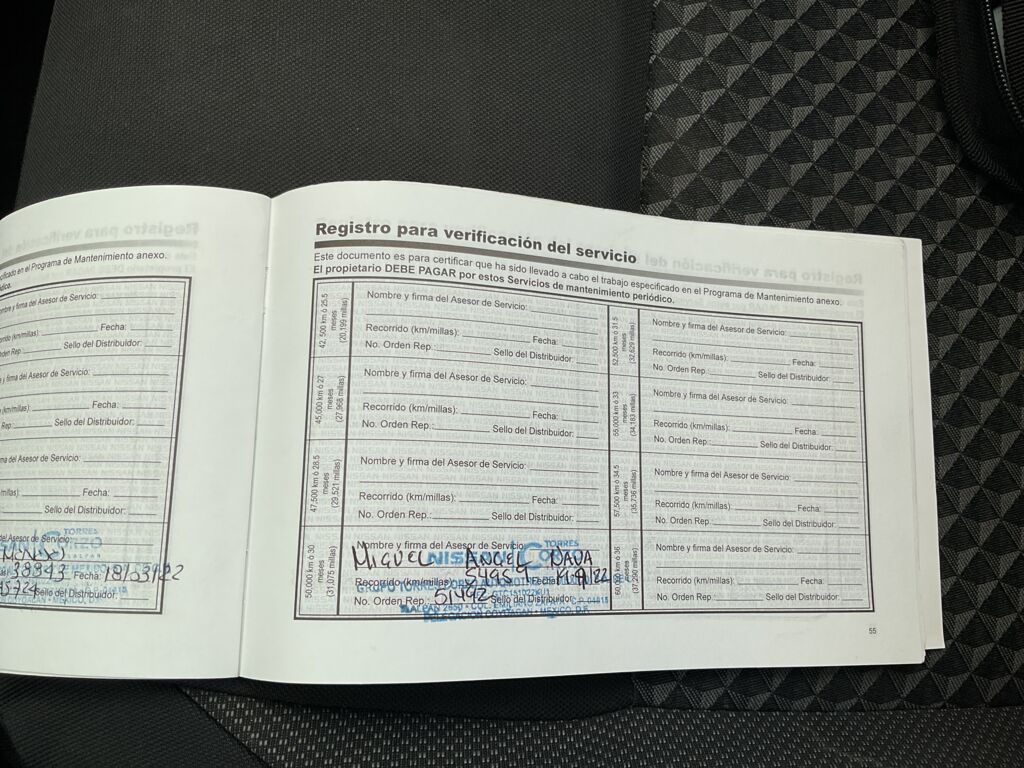 cificado en el Programa de Mantenimiento anexo.
dico.
mbre y firma del Asesor de Servicio:
Fecha:
Orden Rep.: Sello del Distribuidor:
y firma del Asesor de Servicio:
(km/millas): Fecha:
Rep.: Sello del Distribuidor:
ma del Asesor de Servicio:
millas): Fecha:
Sello del Distribuidor:
del Asesor de Servicio:
TORRES
38943 Fecha: 18/03/22
Sello del Distribuidor:
Registro para verificación del servicio
Este documento es para certificar que ha sido llevado a cabo el trabajo especificado en el Programa de Mantenimiento anexo.
El propietario DEBE PAGAR por estos Servicios de mantenimiento periódico.
42,500 km ó 25.5
meses
(20,199 millas)
Nombre y firma del Asesor de Servicio:
Recorrido (km/millas): Fecha:
No. Orden Rep.: Sello del Distribuidor:
45,000 km ó 27
meses
(27,968 millas)
Nombre y firma del Asesor de Servicio:
Recorrido (km/millas): Fecha:
No. Orden Rep.: Sello del Distribuidor:
47,500 km ó 28.5
meses
(29,521 millas)
Nombre y firma del Asesor de Servicio:
Recorrido (km/millas): Fecha:
No. Orden Rep.: Sello del Distribuidor:
50,000 km ó 30
meses
(31,075 millas)
Nombre y firma del Asesor de Servicio:
MIGUEL ANGEL NAVA
NISSAN TORRES
Recorrido (km/millas): Fecha:
No. Orden Rep.: 51492 Sello del Distribuidor:
DELEGACION COYOACAN • MEXICO, D.F.
52,500 km ó 31.5
meses
(32,629 millas)
Nombre y firma del Asesor de Servicio:
Recorrido (km/millas): Fecha:
No. Orden Rep.: Sello del Distribuidor:
55,000 km ó 33
meses
(34,183 millas)
Nombre y firma del Asesor de Servicio:
Recorrido (km/millas): Fecha:
No. Orden Rep.: Sello del Distribuidor:
57,500 km ó 34.5
meses
(35,736 millas)
Nombre y firma del Asesor de Servicio:
Recorrido (km/millas): Fecha:
No. Orden Rep.: Sello del Distribuidor:
60,000 km ó 36
meses
(37,290 millas)
Nombre y firma del Asesor de Servicio:
Recorrido (km/millas): Fecha:
No. Orden Rep.: Sello del Distribuidor:
55